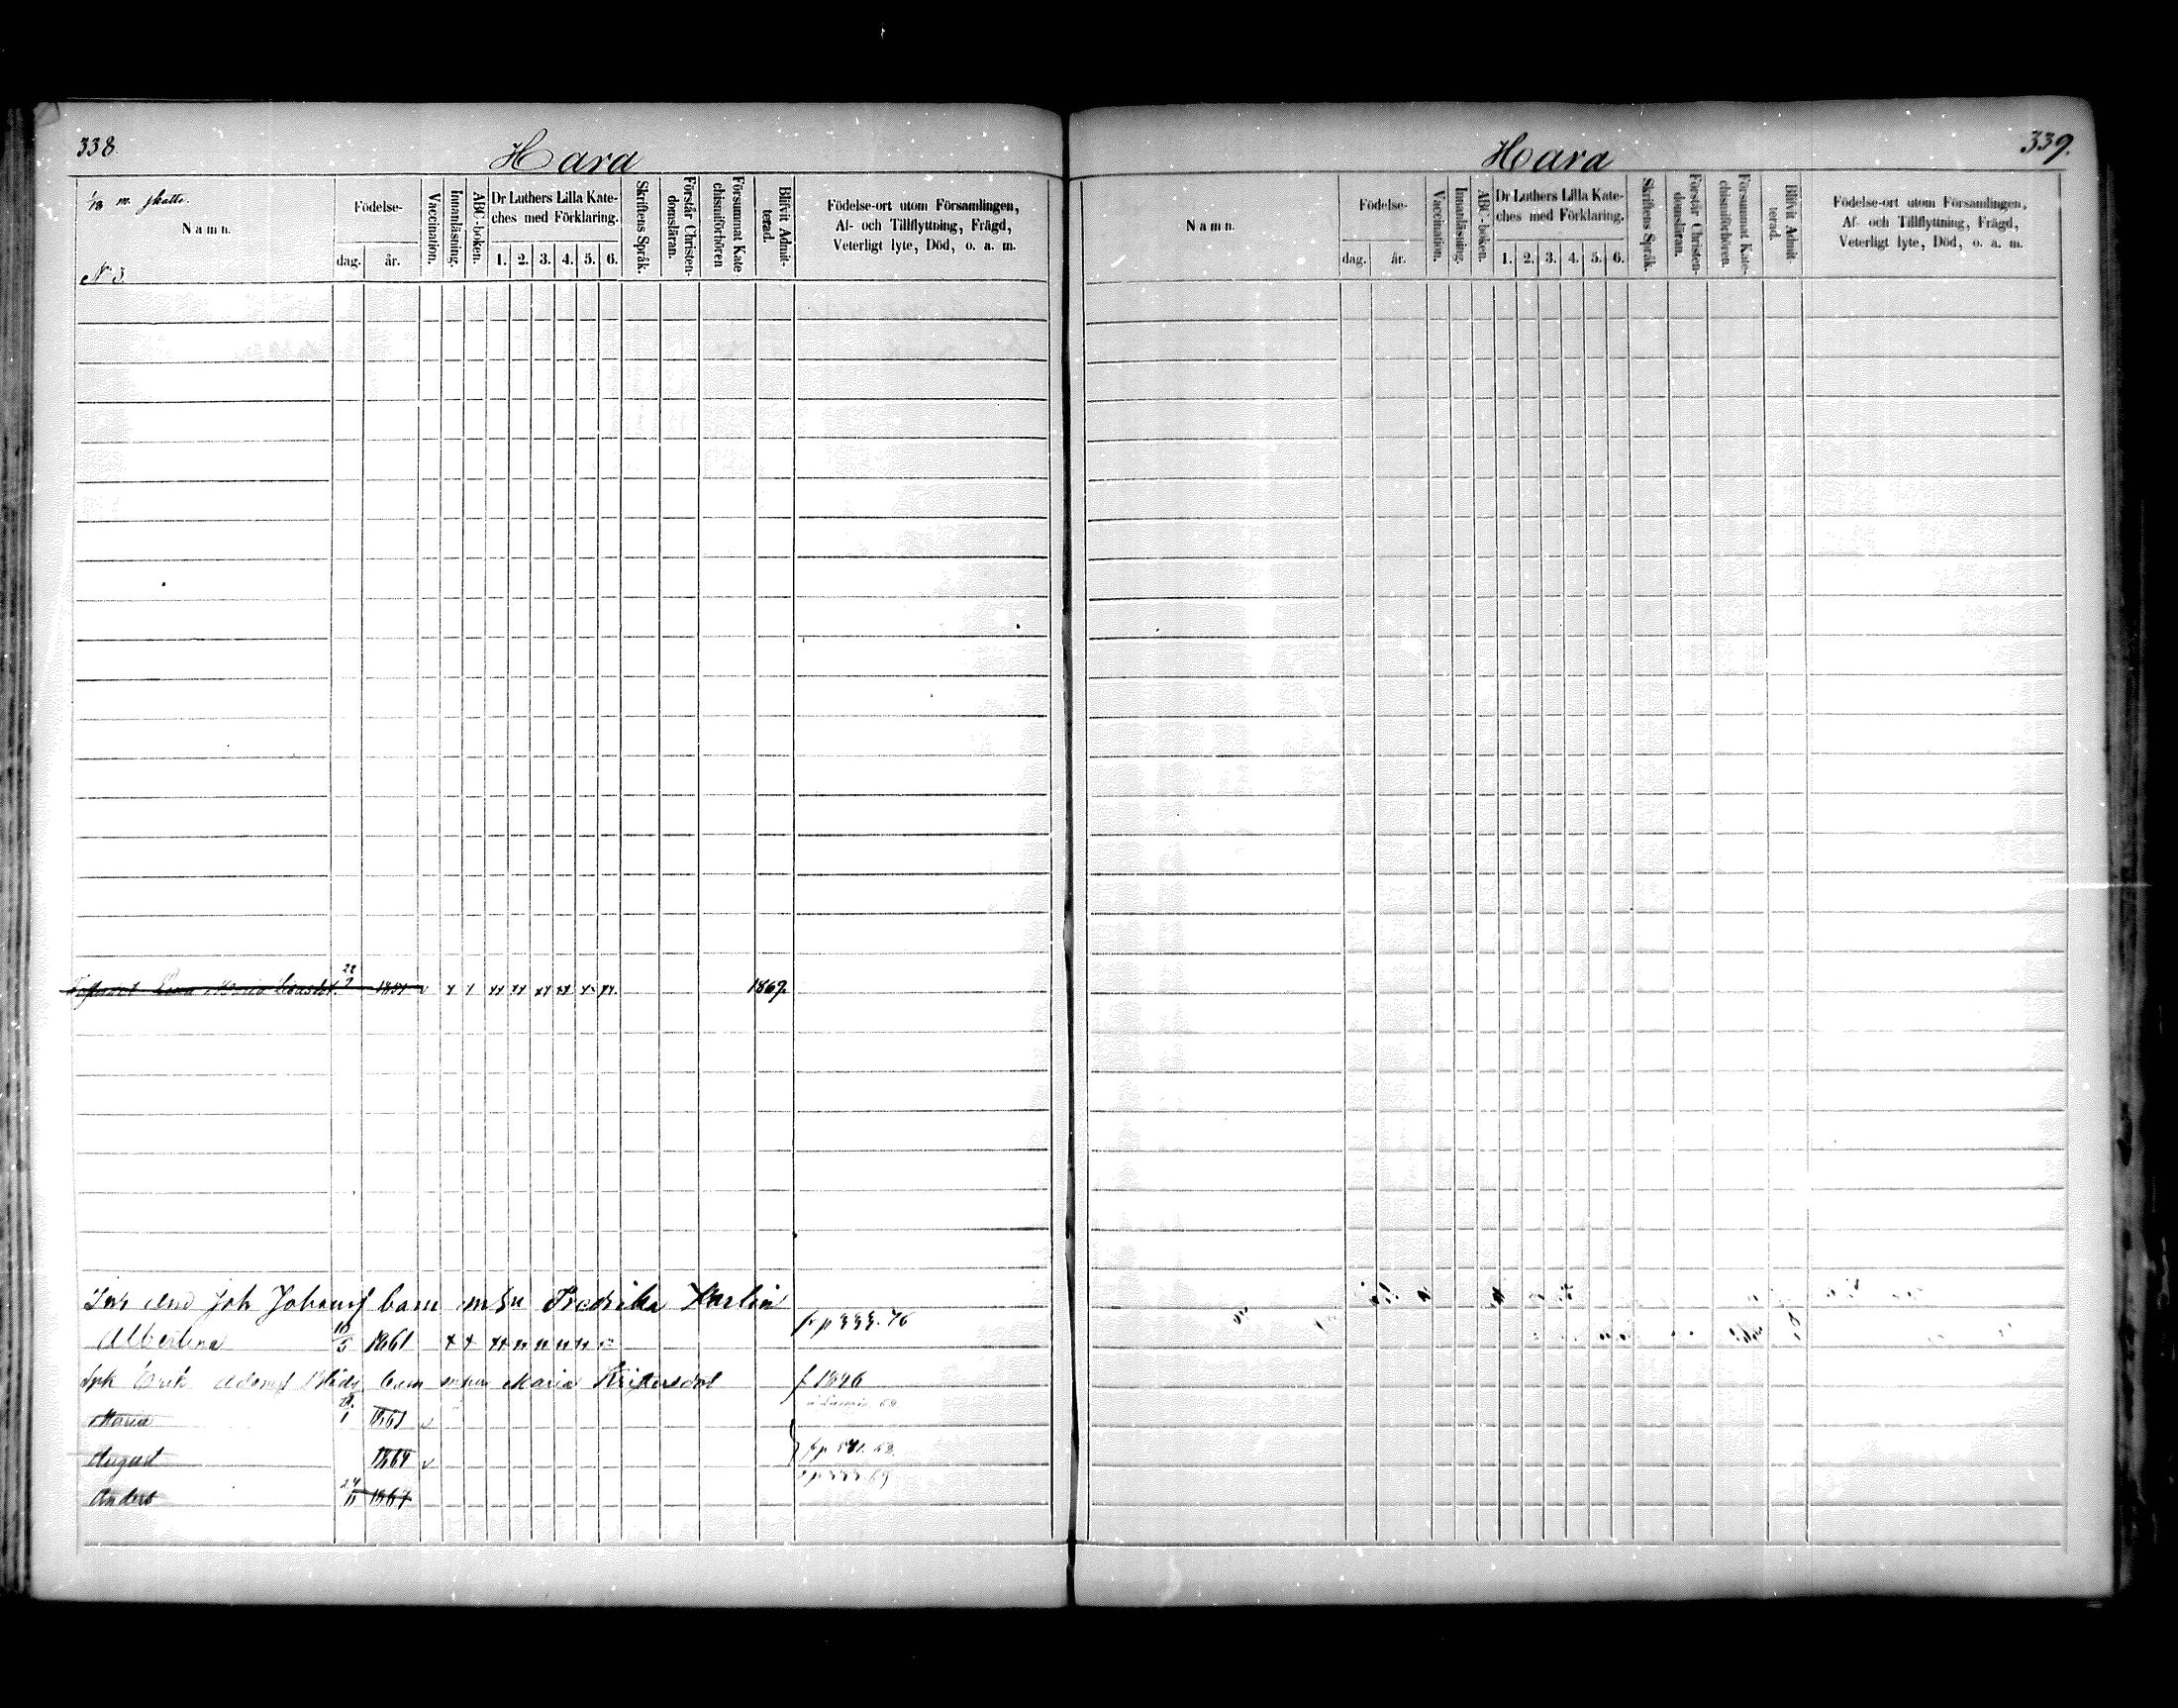 338.
Hara
1/8 m. skatte.
Namn.
N 3.
Födelse-
dag. år.
Vaccination.
Innanläsning.
ABC-boken.
Dr Luthers Lilla Kate-
ches med Förklaring.
1. 2. 3. 4. 5. 6.
Skriftens Språk.
Förstår Christen-
domsläran.
Försummat Kate
chismiförhören
Blifvit Admit-
terad.
Födelse-ort utom Församlingen,
Af- och Tillflyttning, Frägd,
Veterligt lyte, Död, o. a. m.
Maria 22/9 1869.
And Joh Johanss barn m h u Fredrika Karlin
Albertina 10/5 1861 fr p 333. 76
Erik barn Maria Kristersdot f 1846
Maria 1 1861 v
August 1864 v
Anders 24/11 1867
339.
Hara
Namn.
Födelse-
dag. år.
Vaccination.
Innanläsning.
ABC-boken.
Dr Luthers Lilla Kate-
ches med Förklaring.
1. 2. 3. 4. 5. 6.
Skriftens Språk.
Förstår Christen-
domsläran.
Försummat Kate-
chismiförhören.
Blifvit Admit-
terad.
Födelse-ort utom Församlingen,
Af- och Tillflyttning, Frägd,
Veterligt lyte, Död, o. a. m.